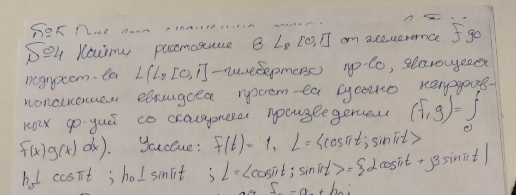 №4 Найти расстояние в L₂[0,1] от элемента f до
подпрост-ва L (L₂[0,1] - гильбертово пр-во, являющееся
пополнением евклидова прост-ва кусочно непрерыв-
ных ф-ций со скалярным произведением (f,g)=∫₀
f(x)g(x)dx). Условие: f(t)=1, L=<cosπt; sinπt>
h₀⊥ cosπt ; h₀⊥ sinπt ; L=<cosπt; sinπt>={αcosπt + βsinπt}